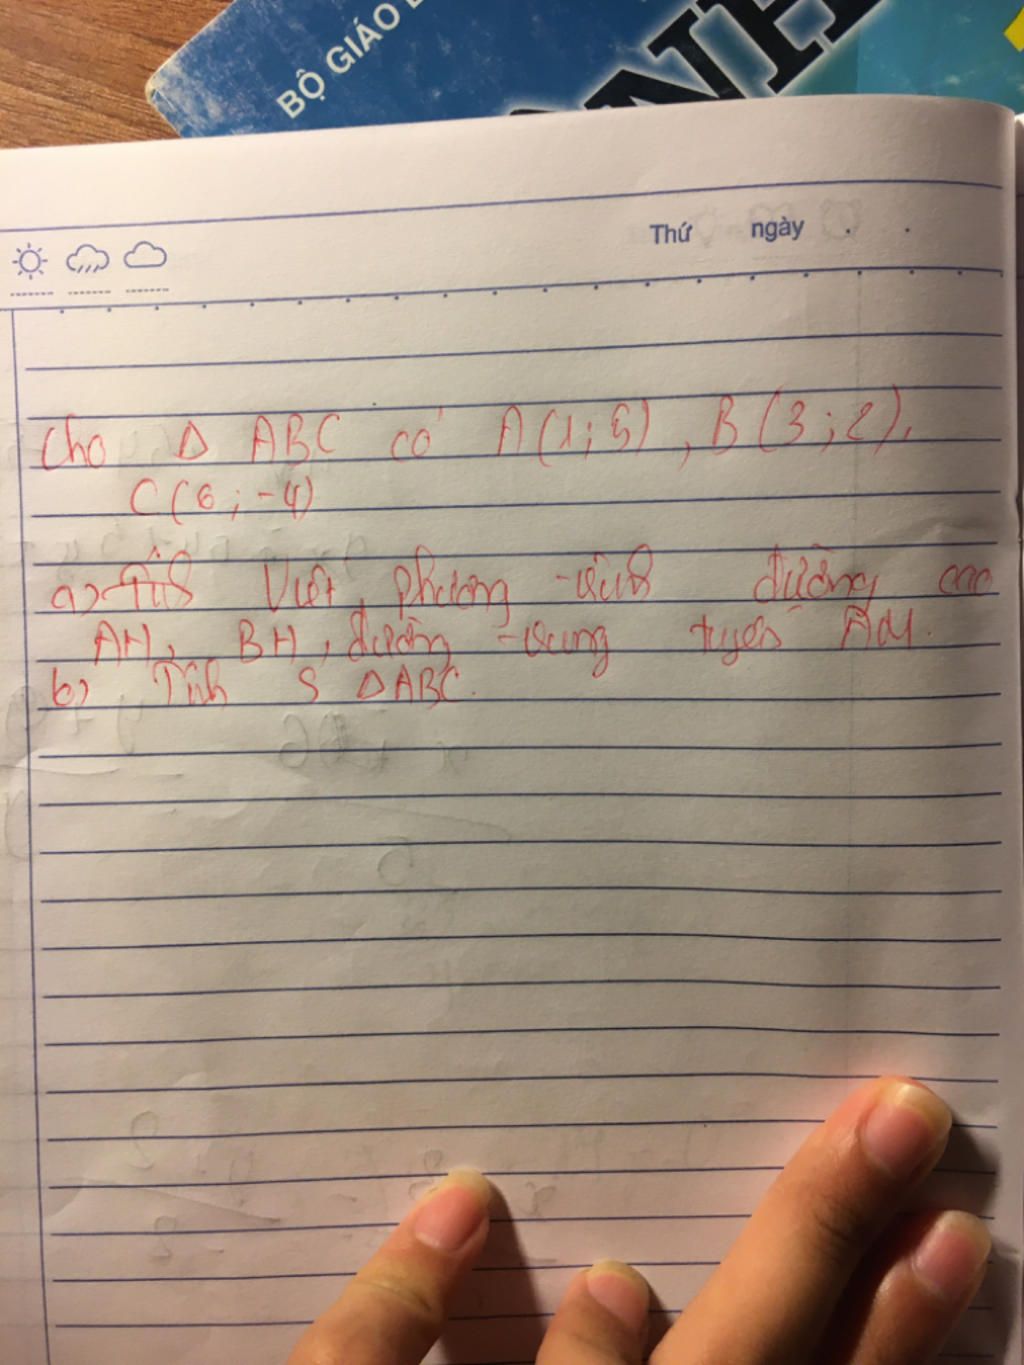 BỘ GIÁO
NH
Thứ ngày
Cho Δ ABC có A(1;5), B(3;2),
C(6;-4)
a) Viết phương trình đường cao
AH, BH, đường trung tuyến AM.
b) Tính S ΔABC.